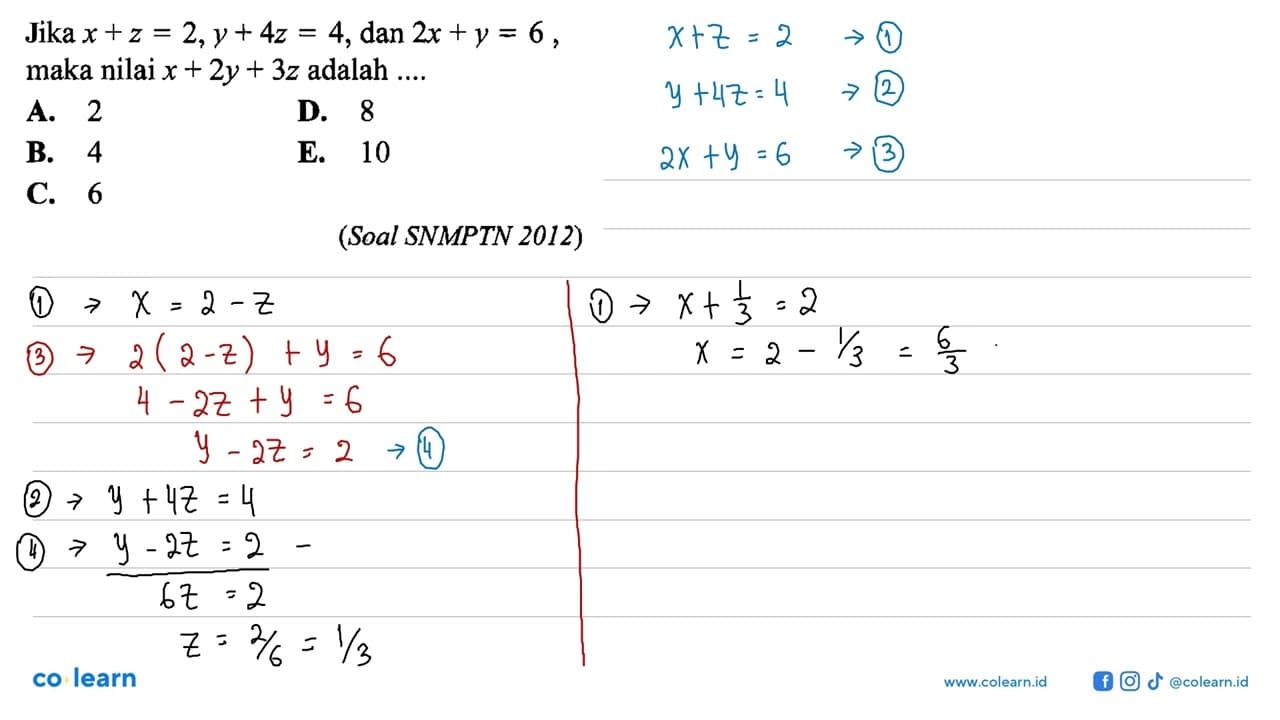 Jika x + z = 2, y + 4z = 4, dan 2x + y = 6 ,
maka nilai x + 2y + 3z adalah ....
A. 2 D. 8
B. 4 E. 10
C. 6
(Soal SNMPTN 2012)
x + z = 2 → ①
y + 4z = 4 → ②
2x + y = 6 → ③
① → x = 2 - z
③ → 2(2-z) + y = 6
4 - 2z + y = 6
y - 2z = 2 → ④
② → y + 4z = 4
④ → y - 2z = 2 -
6z = 2
z = 2/6 = 1/3
① → x + 1/3 = 2
x = 2 - 1/3 = 6/3
co learn
www.colearn.id @colearn.id